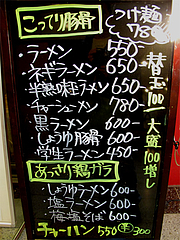 こってり豚骨
つけ麺
780-
・ラーメン 550-
・ネギラーメン 650-
・半熟味玉ラーメン 650-
・チャーシューメン 780-
・黒ラーメン 600-
・しょうゆ豚骨 600-
・学生ラーメン 450-
替玉100
大盛100増し
あっさり鶏ガラ
・しょうゆラーメン 600-
・塩ラーメン 600-
・梅塩そば 600-
チャーハン 550 半300